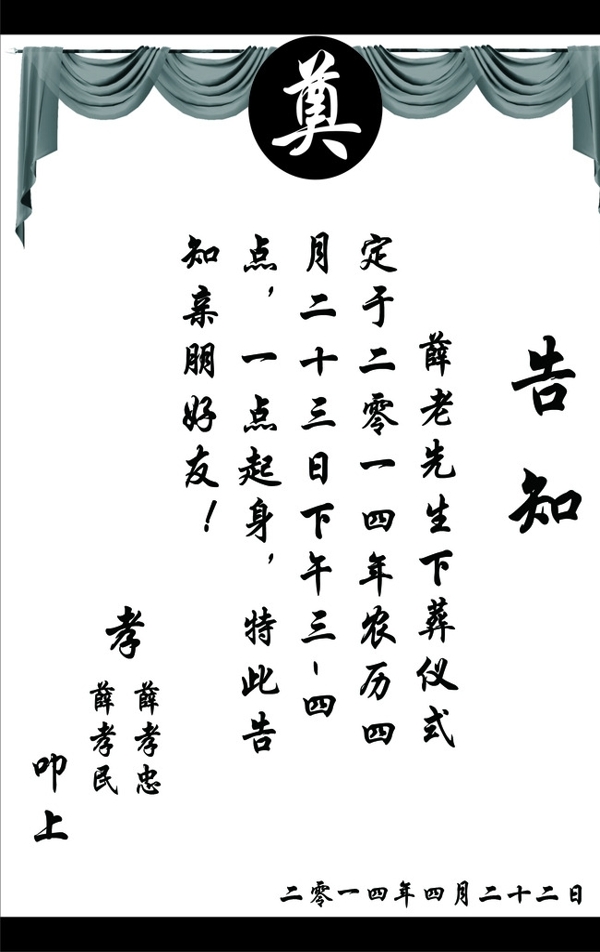 奠
告知
薛老先生下葬仪式
定于二零一四年农历四
月二十三日下午三-四
点，一点起身，特此告
知亲朋好友！
孝
薛孝忠
薛孝民
叩上
二零一四年四月二十二日